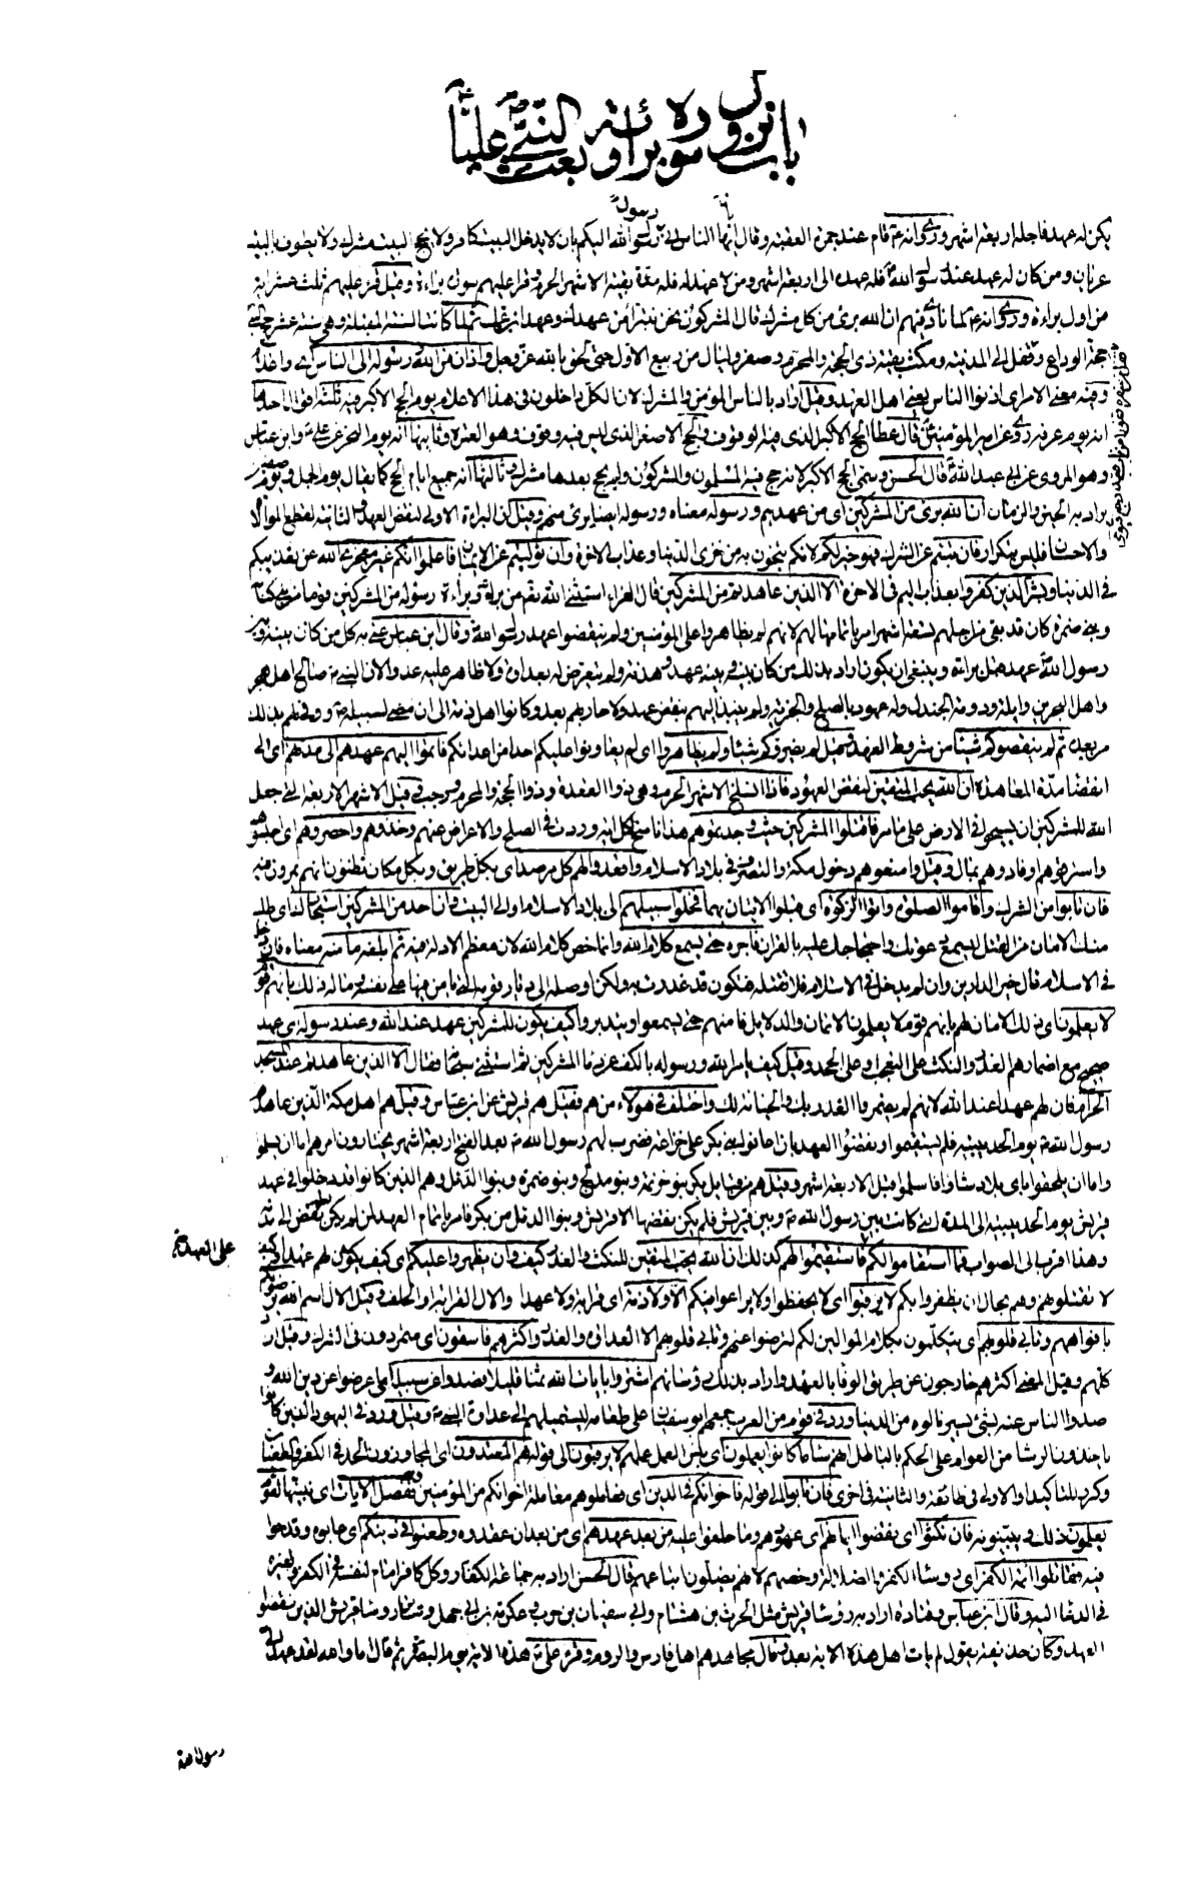 باب نزول سورة برائة و بعث النبی ص علیا ع
یکن له عهد فاجله اربعة اشهر وروی انه ع قام عند جمرة العقبة وقال ایها الناس انی رسول رسول الله الیکم بان لا یدخل البیت کافر ولا یحج البیت مشرک ولا یطوف بالبیت
عریان ومن کان له عهد عند رسول الله فله عهده الی اربعة اشهر ومن لا عهد له فله مدة بقیة الاشهر الحرم وقرء علیهم سورة براءة وقیل قرء علیهم ثلث عشر ایة
من اول براءة وروی انه ع لما نادی فیهم ان الله بریء من کل مشرک قال المشرکون نحن نتبرء من عهدک وعهد ابن عمک ثم لما کانت السنة المقبلة وهی سنة عشر حج النبی
حجة الوداع وقفل الی المدینة ومکث بقیة ذی الحجة والمحرم وصفر ولیال من ربیع الاول حتی لحق بالله عز وجل واذان من الله ورسوله الی الناس
وفیه معنی الامر ای اذنوا الناس یعنی اهل العهد وقیل اراد بالناس المؤمن والمشرک لان الکل داخلون فی هذا الاعلام یوم الحج الاکبر فیه ثلثة اقوال احدها
انه یوم عرفة روی عن امیر المؤمنین قال عطا الحج الاکبر الذی فیه الوقوف والحج الاصغر الذی لیس فیه وقوف وهو العمرة وثانیها انه یوم النحر عن علی وابن عباس
وهو المروی عن ابی عبد الله قال الحسن وسمی الحج الاکبر لانه حج فیه المسلمون والمشرکون ولم یحج بعدها مشرک وثالثها انه جمیع ایام الحج کما یقال یوم الجمل ویوم صفین
یراد به الحین والزمان ان الله بریء من المشرکین ای من عهدهم ورسوله معناه ورسوله ایضا بریء منهم وقیل ان البراءة الاولی لنقض العهد والثانیة لقطع الموالاة
والاحسان فلیس بتکرار فان تبتم عن الشرک فهو خیر لکم لانکم تنجون به من خزی الدنیا وعذاب الاخرة وان تولیتم عن الایمان فاعلموا انکم غیر معجزی الله عن تعذیبکم
فی الدنیا وبشر الذین کفروا بعذاب الیم فی الاخرة الا الذین عاهدتم من المشرکین قال الفراء استثنی الله تعم من براءته وبراءة رسوله من المشرکین قوما من بنی کنانة
وبنی ضمرة کان قد بقی من اجلهم تسعة اشهر امر باتمامها لهم لانهم لم یظاهروا علی المؤمنین ولم ینقضوا عهد رسول الله وقال ابن عباس عنی به کل من کان بینه وبین
رسول الله عهد قبل براءة وینبغی ان یکون اراد بذلک من کان بینه وبینه عهد هدنة ولم یتعرض له بعداوة ولا ظاهر علیه عدوا لان النبی ص صالح اهل هجر
واهل البحرین وایلة ودومة الجندل وله عهود بالصلح والجزیة ولم ینبذ الیهم بنقض عهد ولا حاربهم بعد وکانوا اهل ذمة الی ان مضی لسبیله ص ووفی لهم بذلک
من بعده ثم لم ینقصوکم شیئا من شروط العهد وقیل لم یضروکم شیئا ولم یظاهروا ای لم یعاونوا علیکم احدا من اعدائکم فاتموا الیهم عهدهم الی مدتهم ای الی
انقضاء مدة المعاهدة ان الله یحب المتقین لنقض العهود فاذا انسلخ الاشهر الحرم وهی ذو القعدة وذو الحجة والمحرم ورجب وقیل الاشهر الاربعة التی جعل
الله للمشرکین ان یسیحوا فی الارض علی ما مر فاقتلوا المشرکین حیث وجدتموهم هذا ناسخ لکل ایة وردت فی الصلح والاعراض عنهم وخذوهم واحصروهم ای احبسوهم
واسترقوهم او فادوهم بمال وقیل وامنعوهم دخول مکة والتصرف فی بلاد الاسلام واقعدوا لهم کل مرصد ای بکل طریق وبکل مکان تظنون انهم یمرون فیه
فان تابوا من الشرک واقاموا الصلوة واتوا الزکوة ای قبلوا الاتیان بهما فخلوا سبیلهم الی بلاد الاسلام او الی البیت وان احد من المشرکین استجارک ای طلب
منک الامان من القتل لیسمع دعوتک واحتجاجک علیه بالقران فاجره حتی یسمع کلام الله وانما خص کلام الله لان معظم الادلة فیه ثم ابلغه مأمنه معناه فان دخل
فی الاسلام نال خیر الدارین وان لم یدخل فی الاسلام فلا تقتله فتکون قد غدرت به ولکن اوصله الی دیار قومه التی یأمن فیها علی نفسه وماله ذلک بانهم قوم
لا یعلمون ای ذلک الامان لهم بانهم قوم لا یعلمون الایمان والدلایل فامنهم حتی یسمعوا ویتدبروا کیف یکون للمشرکین عهد عند الله وعند رسوله ای عهد
صحیح مع اضمارهم الغدر والنکث علی التعجب او علی الجحد وقیل کیف یامر الله ورسوله بالکف عن دماء المشرکین ثم استثنی سبحانه فقال الا الذین عاهدتم عند المسجد
الحرام فان لهم عهدا عند الله لانهم لم یضمروا الغدر بک والخیانة لک واختلف فی هولاء من هم فقیل هم قریش عن ابن عباس وقیل هم اهل مکة الذین عاهدهم
رسول الله ص یوم الحدیبیة فلم یستقیموا ونقضوا العهد بان اعانوا بنی بکر علی خزاعة فضرب لهم رسول الله ص بعد الفتح اربعة اشهر یختارون امرهم اما ان یسلموا
واما ان یلحقوا بای بلاد شاؤا فاسلموا قبل الاربعة اشهر وقیل هم من قبایل بکر بنو خزیمة وبنو مدلج وبنو ضمرة وبنوا الدئل وهم الذین کانوا قد دخلوا فی عهد
قریش یوم الحدیبیة الی المدة التی کانت بین رسول الله ص وبین قریش فلم یکن نقضها الا قریش وبنوا الدئل من بکر فامر باتمام العهد لمن لم یکن له نقض الی مدته
وهذا اقرب الی الصواب فما استقاموا لکم فاستقیموا لهم کذلک ان الله یحب المتقین للنکث والغدر کیف وان یظهروا علیکم ای کیف یکون لهم عهد وکیف
لا تقتلوهم وهم بحال ان یظفروا بکم لا یرقبوا ای لا یحفظوا ولا یراعوا فیکم الا ولا ذمة ای قرابة ولا عهدا والال القرابة او الحلف وقیل الال اسم الله یرضونکم
بافواههم وتابی قلوبهم ای یتکلمون بکلام الموالین لکم لترضوا عنهم وتابی قلوبهم الا العداوة والغدر واکثرهم فاسقون ای متمردون فی الشرک وقیل اراد
کلهم وقیل المعنی اکثرهم خارجون عن طریق الوفاء بالعهد واراد بذلک رؤساءهم اشتروا بایات الله ثمنا قلیلا فصدوا عن سبیله ای اعرضوا عن دین الله و
صدوا الناس عنه بشیء یسیر نالوه من الدنیا ورد فی قوم من العرب جمعهم ابو سفیان علی طعامه لیستمیلهم الی عداوة النبی ص وقیل ورد فی الیهود الذین کانوا
یأخذون الرشا من العوام علی الحکم بالباطل انهم ساء ما کانوا یعملون ای بئس العمل عملهم لا یرقبون الی قوله هم المعتدون ای المجاوزون الحد فی الکفر والطغیان
وکرر للتاکید او الاولی فی طائفة والثانیة فی اخری فان تابوا الی قوله فاخوانکم فی الدین ای فعاملوهم معاملة اخوانکم من المؤمنین ونفصل الایات ای نبینها لقوم
یعلمون ذلک ویتبینونه فان نکثوا ای نقضوا ایمانهم ای عهودهم وما حلفوا علیه من بعد عهدهم ای من بعد ان عقدوه وطعنوا فی دینکم ای عابوه وقدحوا
فیه فقاتلوا ائمة الکفر ای رؤساء الکفر والضلالة وخصهم لانهم یضلون اتباعهم قال الحسن اراد به جماعة الکفار وکل کافر امام لنفسه فی الکفر ولغیره
فی الدعاء الیه وقال ابن عباس وقتادة اراد به رؤساء قریش مثل الحرث بن هشام وابی سفیان بن حرب وعکرمة بن ابی جهل وسائر رؤساء قریش الذین نقضوا
العهد وکان حذیفة یقول لم یات اهل هذه الایة بعد وقال مجاهد هم اهل فارس والروم وقرء علی ع هذه الایة یوم البصرة ثم قال اما والله لقد عهد الی
علی العهد
رسول الله